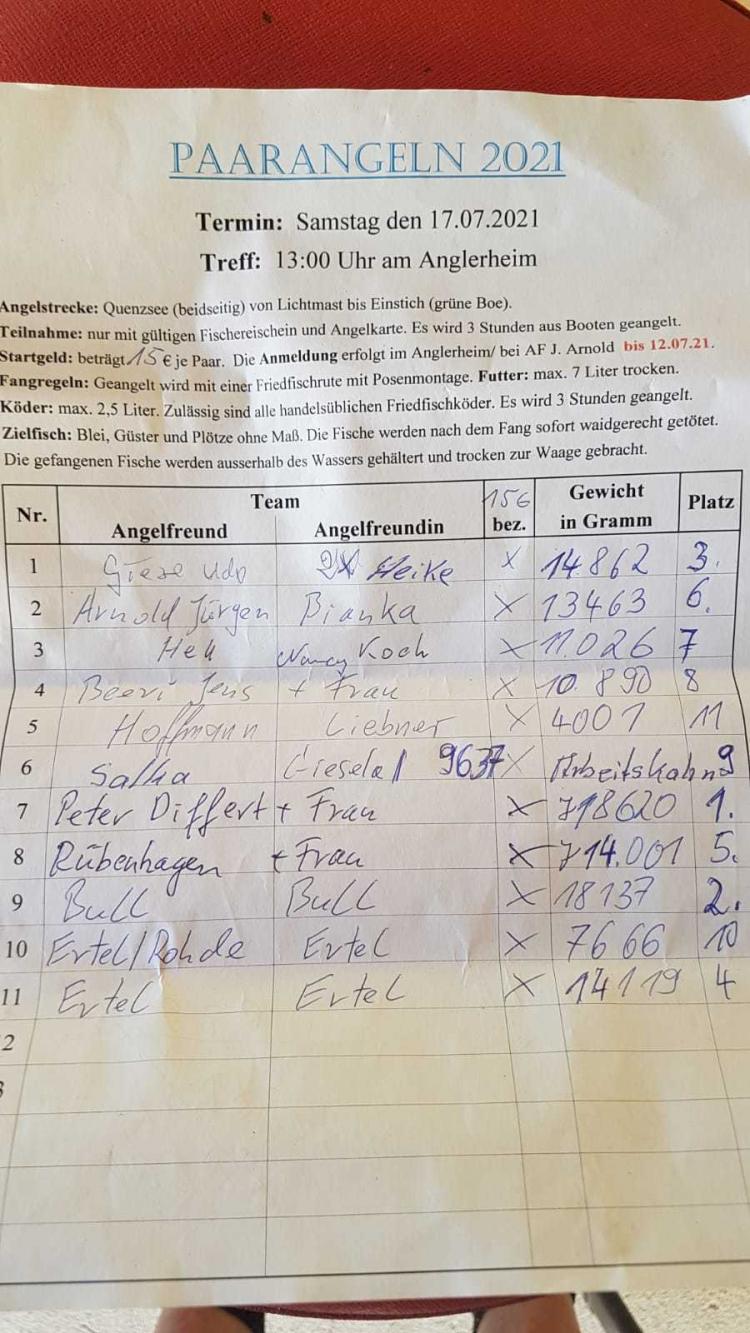 PAARANGELN 2021
Termin: Samstag den 17.07.2021
Treff: 13:00 Uhr am Anglerheim
Angelstrecke: Quenzsee (beidseitig) von Lichtmast bis Einstich (grüne Boe).
Teilnahme: nur mit gültigen Fischereischein und Angelkarte. Es wird 3 Stunden aus Booten geangelt.
Startgeld: beträgt 15 € je Paar. Die Anmeldung erfolgt im Anglerheim/ bei AF J. Arnold bis 12.07.21.
Fangregeln: Geangelt wird mit einer Friedfischrute mit Posenmontage. Futter: max. 7 Liter trocken.
Köder: max. 2,5 Liter. Zulässig sind alle handelsüblichen Friedfischköder. Es wird 3 Stunden geangelt.
Zielfisch: Blei, Güster und Plötze ohne Maß. Die Fische werden nach dem Fang sofort waidgerecht getötet.
Die gefangenen Fische werden ausserhalb des Wassers gehältert und trocken zur Waage gebracht.
Nr. Team 15€ bez. Gewicht in Gramm Platz
Angelfreund Angelfreundin
1 Giese Udo Heike x 14.862 3.
2 Arnold Jürgen Bianka x 13463 6.
3 Nancy Koch x 11.026 7
4 Jens + Frau x 10.890 8
5 Hoffmann Liebner x 4001 11
6 9637 x Arbeitskahn 9
7 Peter Differt + Frau x 18620 1.
8 Rübenhagen + Frau x 14.001 5.
9 Bull Bull x 18137 2.
10 Ertel/Rohde Ertel x 7666 10
11 Ertel Ertel x 14119 4
2
3